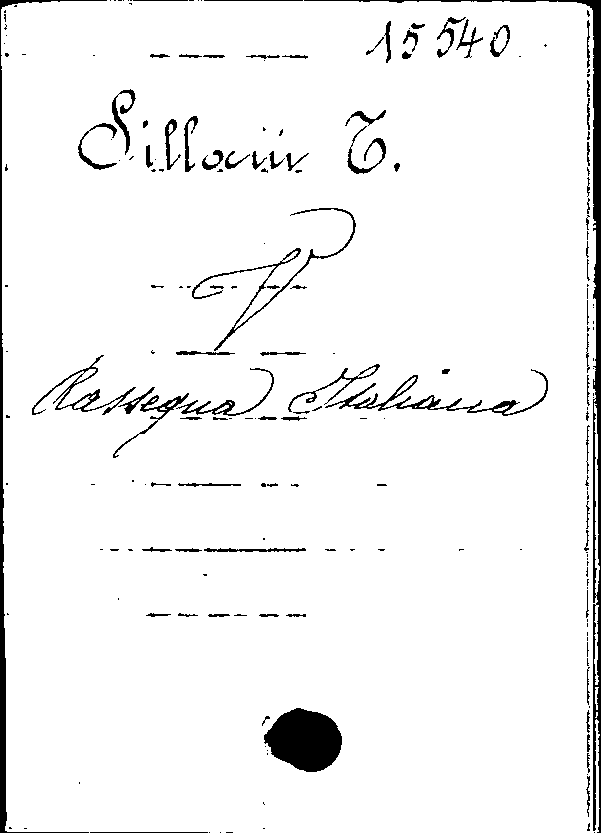 15540
Sillani T.
V
Rassegna Italiana